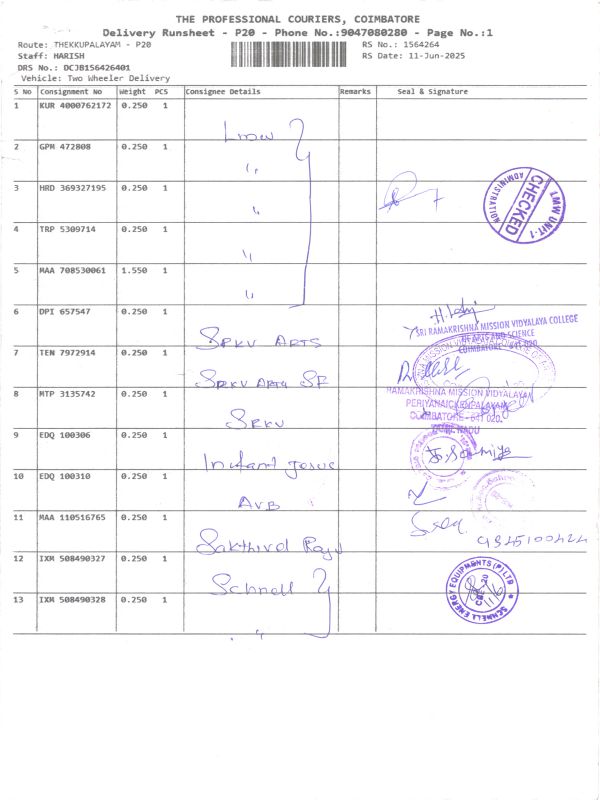 THE PROFESSIONAL COURIERS, COIMBATORE
Delivery Runsheet - P20 - Phone No.:9047080280 - Page No.:1
Route: THEKKUPALAYAM - P20 RS No.: 1564264
Staff: HARISH RS Date: 11-Jun-2025
DRS No.: DCJB156426401
Vehicle: Two Wheeler Delivery
S No Consignment No Weight PCS Consignee Details Remarks Seal & Signature
1 KUR 4000762172 0.250 1
Lmw
2 GPM 472808 0.250 1
"
3 HRD 369327195 0.250 1
"
ADMINISTRATION CHECKED LMW UNIT-1
4 TRP 5309714 0.250 1
"
5 MAA 708530061 1.550 1
"
6 DPI 657547 0.250 1
SRKV ARTS
SRI RAMAKRISHNA MISSION VIDYALAYA COLLEGE
OF ARTS AND SCIENCE
COIMBATORE - 641 020
7 TEN 7972914 0.250 1
SRKV Arts
8 MTP 3135742 0.250 1
SRKV
RAMAKRISHNA MISSION VIDYALAYA
PERIYANAICKENPALAYAM
COIMBATORE - 641 020.
TAMIL NADU
9 EDQ 100306 0.250 1
Infant Jesus
10 EDQ 100310 0.250 1
AVB
11 MAA 110516765 0.250 1
Sakthivel Raju
12 IXM 508490327 0.250 1
Schnell
SCHNELL ENERGY EQUIPMENTS (P) LTD
CBE-20
13 IXM 508490328 0.250 1
"